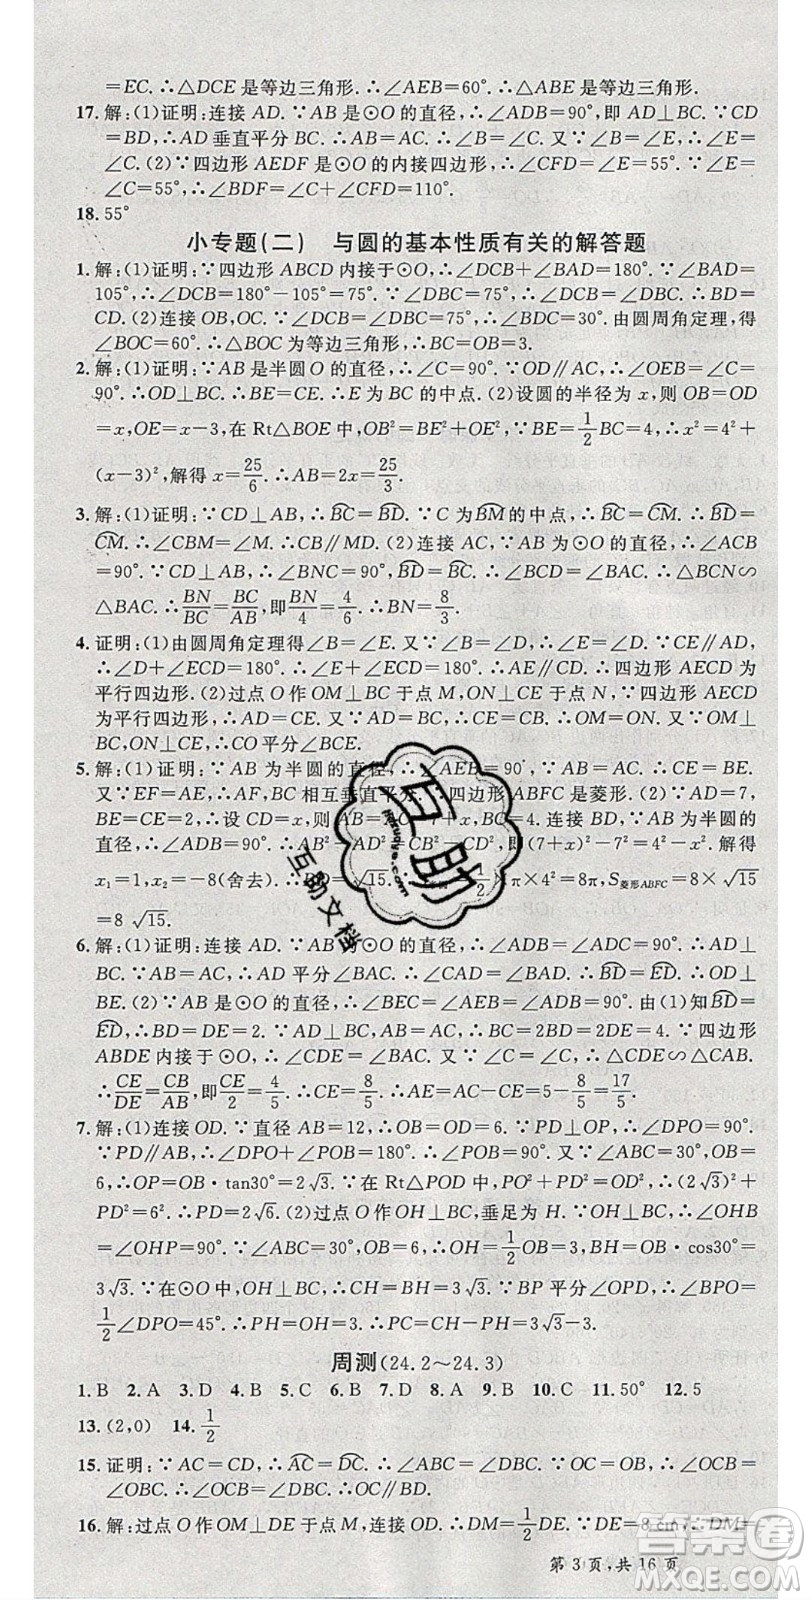 =EC.∴△DCE是等边三角形.∴∠AEB=60°.
17.解:(1)证明:连接AD.∵AB是⊙O的直径,∴∠ADB=90°,即AD⊥BC.∵CD
=BD,∴AD垂直平分BC.∴AB=AC.∴∠B=∠C.又∵∠B=∠E,∴∠E=
∠C.(2)∵四边形AEDF是⊙O的内接四边形,∴∠CFD=∠E=55°.又∵∠E=
∠C=55°,∴∠BDF=∠C+∠CFD=110°.
18.55°
小专题(二) 与圆的基本性质有关的解答题
1.解:(1)证明:∵四边形ABCD内接于⊙O,∴∠DCB+∠BAD=180°.∵∠BAD=
105°,∴∠DCB=180°-105°=75°.∵∠DBC=75°,∴∠DCB=∠DBC.∴BD=
CD.(2)连接OB,OC.∵∠DCB=∠DBC=75°,∴∠BDC=30°.由圆周角定理,得
∠BOC=60°.∴△BOC为等边三角形.∴BC=OB=3.
2.解:(1)证明:∵AB是半圆O的直径,∴∠C=90°.∵OD∥AC,∴∠OEB=∠C=
90°.∴OD⊥BC.∴BE=CE.∴E为BC的中点.(2)设圆的半径为x,则OB=OD
=x,OE=x-3,在Rt△BOE中,OB²=BE²+OE².∵BE=1/2BC=4,∴x²=4²+
(x-3)²,解得x=25/6.∴AB=2x=25/3.
3.解:(1)证明:∵CD⊥AB,∴BC⌒=BD⌒.∵C为BM⌒的中点,∴BC⌒=CM⌒.∴BD⌒=
CM⌒.∴∠CBM=∠M.∴CB∥MD.(2)连接AC,∵AB为⊙O的直径,∴∠ACB
=90°.∵CD⊥AB,∴∠BNC=90°,BD⌒=BC⌒.∴∠BCD=∠BAC.∴△BCN∽
△BAC.∴BN/BC=BC/AB,即BN/4=4/6.∴BN=8/3.
4.证明:(1)由圆周角定理得∠B=∠E.又∵∠B=∠D,∴∠E=∠D.∵CE∥AD,
∴∠D+∠ECD=180°.∴∠E+∠ECD=180°.∴AE∥CD.∴四边形AECD
为平行四边形.(2)过点O作OM⊥BC于点M,ON⊥CE于点N,∵四边形AECD
为平行四边形,∴AD=CE.又∵AD=BC,∴CE=CB.∴OM=ON.又∵OM⊥
BC,ON⊥CE,∴CO平分∠BCE.
5.解:(1)证明:∵AB为半圆的直径,∴∠AEB=90°,∵AB=AC,∴CE=BE.
又∵EF=AE,∴AF,BC相互垂直平分.∴四边形ABFC是菱形.(2)∵AD=7,
BE=CE=2,∴设CD=x,则AB=AC=7+x.连接BD,∵AB为半圆的直径,
∴∠ADB=90°.∴AB²-AD²=CB²-CD²,即(7+x)²-7²=4²-x².解得
x₁=1,x₂=-8(舍去).∴BD=√15.∴S半圆=1/2×π×4²=8π,S菱形ABFC=8×√15
=8√15.
6.解:(1)证明:连接AD.∵AB为⊙O的直径,∴∠ADB=∠ADC=90°.∴AD⊥
BC.∵AB=AC,∴AD平分∠BAC.∴∠BAD=∠CAD.∴BD⌒=ED⌒.∴OD⊥
BE.(2)∵AB是⊙O的直径,∴∠BEC=∠AEB=∠ADC=90°.由(1)知BD⌒=
ED⌒,∴BD=DE=2.∵AB=AC,AD⊥BC,∴BC=2BD=2DE=4.∵四边形
ABDE内接于⊙O,∴∠CDE=∠CAB.又∵∠C=∠C,∴△CDE∽△CAB.
∴CE/DE=CB/AB,即CE/2=4/5.∴CE=8/5.∴AE=AC-CE=5-8/5=17/5.
7.解:(1)连接OD.∵直径AB=12,∴OB=OD=6.∵PD⊥OP,∴∠DPO=90°.
∵PD∥AB,∴∠DPO+∠POB=180°.∴∠POB=90°.又∵∠ABC=30°,OB=
6,∴OP=OB·tan30°=2√3.∵在Rt△POD中,PO²+PD²=OD²,∴(2√3)²+
PD²=6².∴PD=2√6.(2)过点O作OH⊥BC,垂足为H.∵OH⊥BC,∴∠OHB
=∠OHP=90°.∵∠ABC=30°,OB=6,∴OH=1/2OB=3,BH=OB·cos30°=
3√3.∵在⊙O中,OH⊥BC,∴CH=BH=3√3.∵BP平分∠OPD,∴∠BPO=
1/2∠DPO=45°.∴PH=OH=3.∴PC=CH-PH=3√3-3.
周测(24.2~24.3)
1.B 2.A 3.D 4.B 5.C 6.B 7.D 8.A 9.B 10.C 11.50° 12.5
13.(2,0) 14.1/2
15.证明:∵AC=CD,∴AC⌒=DC⌒.∴∠ABC=∠DBC.∵OC=OB,∴∠OCB=
∠OBC.∴∠OCB=∠DBC.∴OC∥BD.
16.解:过点O作OM⊥DE于点M,连接OD.∴DM=1/2DE.∵DE=8 cm,∴DM=
第3页,共16页
互助
互助文档
答案圈